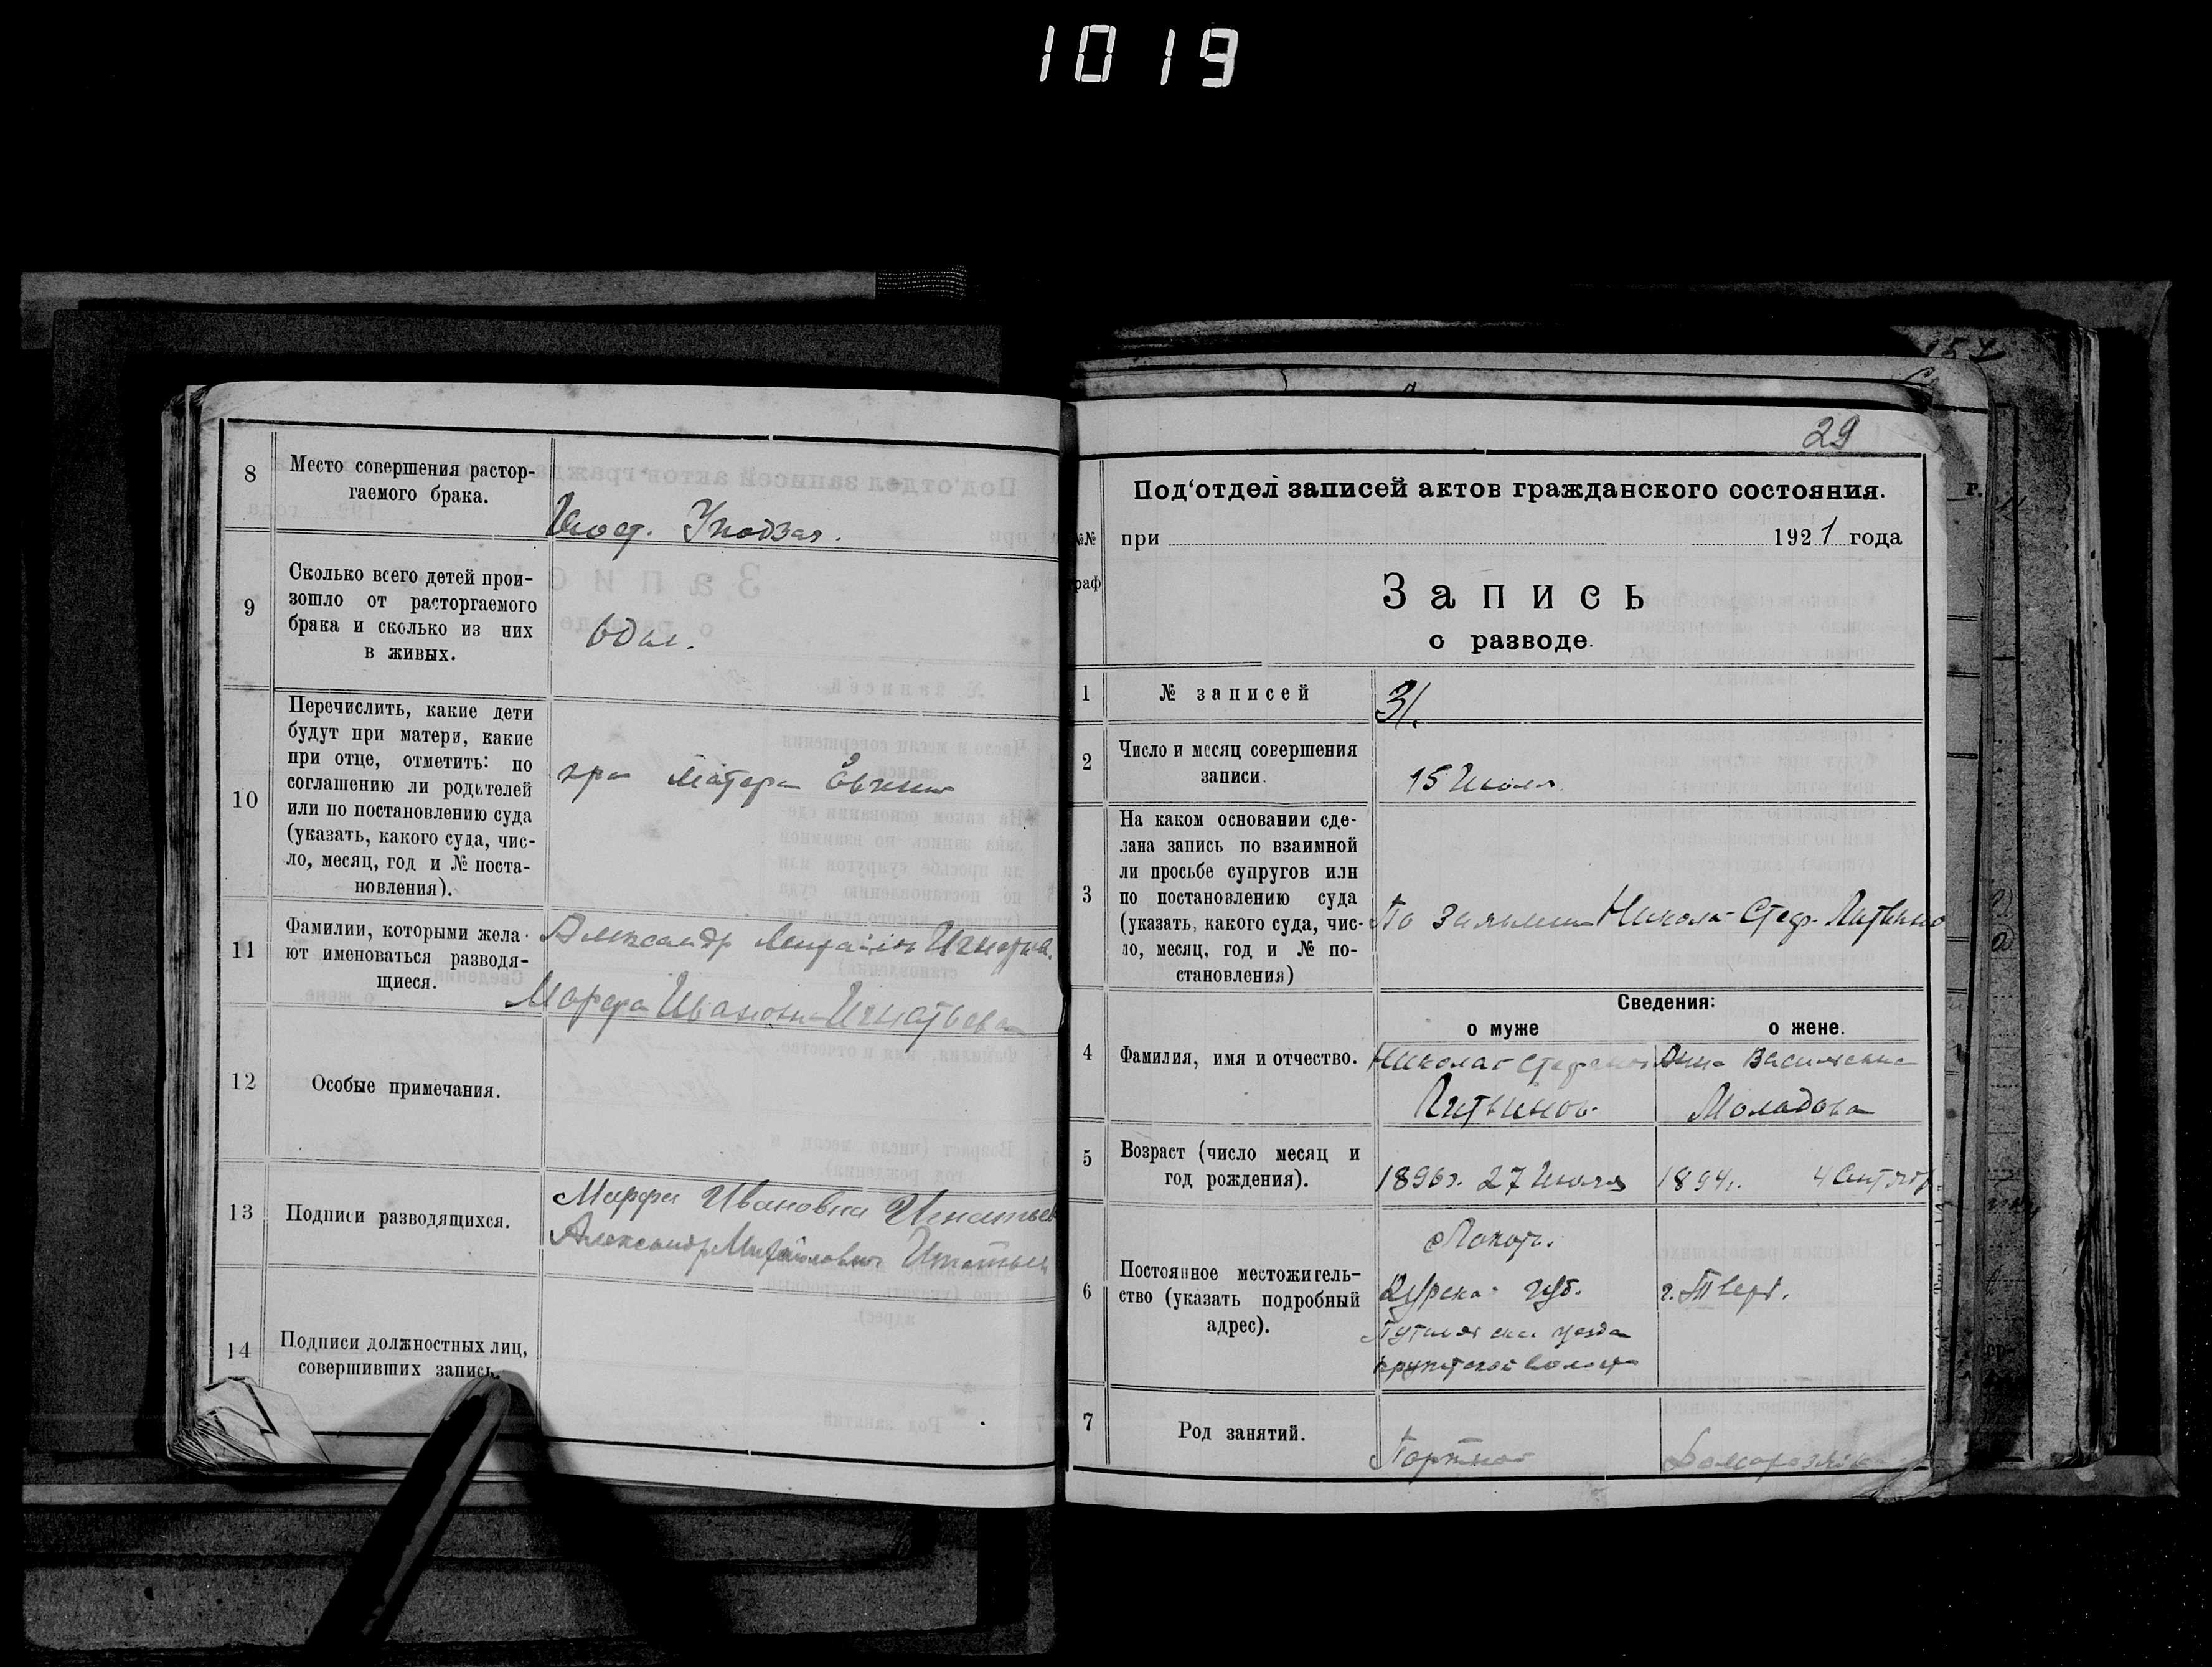 1019
8
Место совершения растор-
гаемого брака.
9
Сколько всего детей прои-
зошло от расторгаемого
брака и сколько из них
в живых.
один.
10
Перечислить, какие дети
будут при матери, какие
при отце, отметить: по
соглашению ли родителей
или по постановлению суда
(указать, какого суда, чис-
ло, месяц, год и № поста-
новления).
при матери
11
Фамилии, которыми жела-
ют именоваться разводя-
щиеся.
Александр
Марфа Ивановна Игнатьева
12
Особые примечания.
13
Подписи разводящихся.
Марфа Ивановна Игнатьев
Александр Михайлович Игнатьев
14
Подписи должностных лиц,
совершивших запись.
29
№№
граф
Под'отдел записей актов гражданского состояния.
при 1921 года
Запись
о разводе.
1
№ записей
31.
2
Число и месяц совершения
записи.
15 Июля
3
На каком основании сде-
лана запись по взаимной
ли просьбе супругов или
по постановлению суда
(указать, какого суда, чис-
ло, месяц, год и № по-
становления)
По Никола Стеф. Литвино
Сведения:
о муже
о жене.
4
Фамилия, имя и отчество.
Николай
Литвинов
Анна Васильевна
Моладова
5
Возраст (число месяц и
год рождения).
1896г. 27 Июля
1894г. 4 Сентяб
6
Постоянное местожитель-
ство (указать подробный
адрес).
губ.
уезда
г. Тверь.
7
Род занятий.
Портной